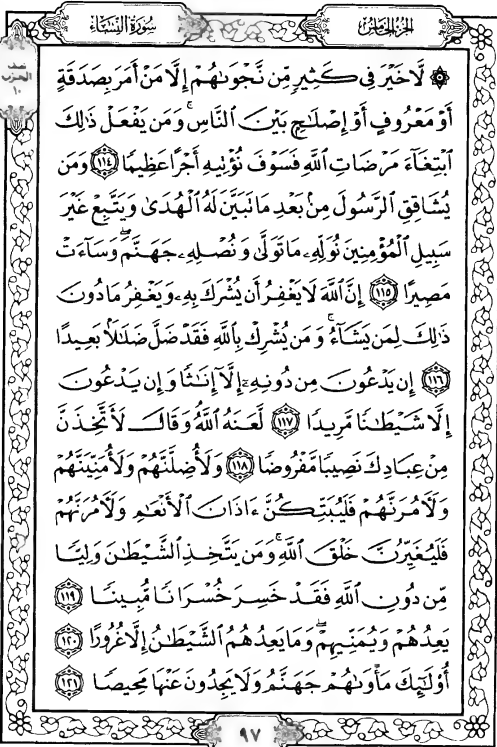 سُورَةُ النِّسَاءِ
الجُزْءُ الخَامِسُ
الحزب
١٠
۞ لَّا خَيْرَ فِى كَثِيرٍ مِّن نَّجْوَىٰهُمْ إِلَّا مَنْ أَمَرَ بِصَدَقَةٍ
أَوْ مَعْرُوفٍ أَوْ إِصْلَٰحٍۭ بَيْنَ ٱلنَّاسِ ۚ وَمَن يَفْعَلْ ذَٰلِكَ
ٱبْتِغَآءَ مَرْضَاتِ ٱللَّهِ فَسَوْفَ نُؤْتِيهِ أَجْرًا عَظِيمًا ١١٤ وَمَن
يُشَاقِقِ ٱلرَّسُولَ مِنۢ بَعْدِ مَا تَبَيَّنَ لَهُ ٱلْهُدَىٰ وَيَتَّبِعْ غَيْرَ
سَبِيلِ ٱلْمُؤْمِنِينَ نُوَلِّهِۦ مَا تَوَلَّىٰ وَنُصْلِهِۦ جَهَنَّمَ ۖ وَسَآءَتْ
مَصِيرًا ١١٥ إِنَّ ٱللَّهَ لَا يَغْفِرُ أَن يُشْرَكَ بِهِۦ وَيَغْفِرُ مَا دُونَ
ذَٰلِكَ لِمَن يَشَآءُ ۚ وَمَن يُشْرِكْ بِٱللَّهِ فَقَدْ ضَلَّ ضَلَٰلًۢا بَعِيدًا
١١٦ إِن يَدْعُونَ مِن دُونِهِۦٓ إِلَّآ إِنَٰثًا وَإِن يَدْعُونَ
إِلَّا شَيْطَٰنًا مَّرِيدًا ١١٧ لَّعَنَهُ ٱللَّهُ ۘ وَقَالَ لَأَتَّخِذَنَّ
مِنْ عِبَادِكَ نَصِيبًا مَّفْرُوضًا ١١٨ وَلَأُضِلَّنَّهُمْ وَلَأُمَنِّيَنَّهُمْ
وَلَءَامُرَنَّهُمْ فَلَيُبَتِّكُنَّ ءَاذَانَ ٱلْأَنْعَٰمِ وَلَءَامُرَنَّهُمْ
فَلَيُغَيِّرُنَّ خَلْقَ ٱللَّهِ ۚ وَمَن يَتَّخِذِ ٱلشَّيْطَٰنَ وَلِيًّا
مِّن دُونِ ٱللَّهِ فَقَدْ خَسِرَ خُسْرَانًا مُّبِينًا ١١٩
يَعِدُهُمْ وَيُمَنِّيهِمْ ۖ وَمَا يَعِدُهُمُ ٱلشَّيْطَٰنُ إِلَّا غُرُورًا ١٢٠
أُو۟لَٰٓئِكَ مَأْوَىٰهُمْ جَهَنَّمُ وَلَا يَجِدُونَ عَنْهَا مَحِيصًا ١٢١
٩٧